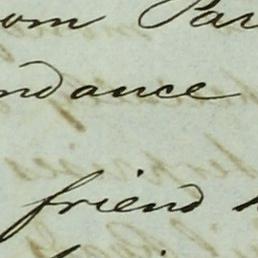 om Par
ndance
friend